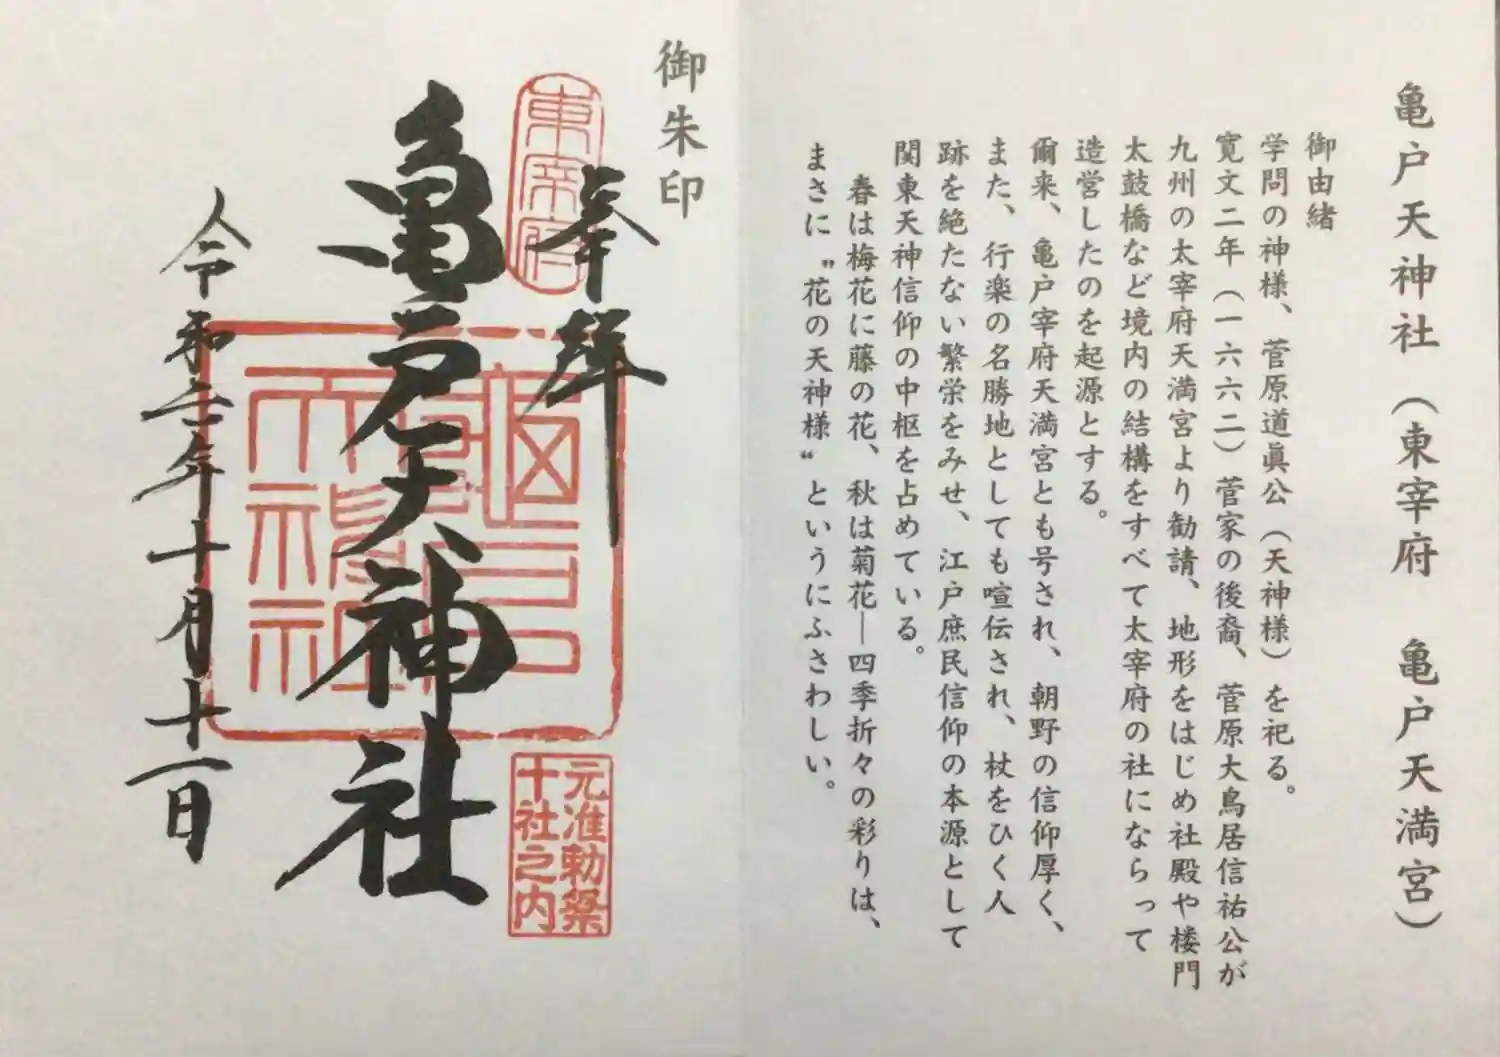 亀戸天神社（東宰府　亀戸天満宮）
御由緒
学問の神様、菅原道眞公（天神様）を祀る。
寛文二年（一六六二）菅家の後裔、菅原大鳥居信祐公が
九州の太宰府天満宮より勧請、地形をはじめ社殿や楼門
太鼓橋など境内の結構をすべて太宰府の社にならって
造営したのを起源とする。
爾来、亀戸宰府天満宮とも号され、朝野の信仰厚く、
また、行楽の名勝地としても喧伝され、杖をひく人
跡を絶たない繁栄をみせ、江戸庶民信仰の本源として
関東天神信仰の中枢を占めている。
春は梅花に藤の花、秋は菊花―四季折々の彩りは、
まさに〝花の天神様〟というにふさわしい。
御朱印
奉拝
東宰府
亀戸天神社
亀戸天神社
元准勅祭
十社之内
令和二年十月十一日